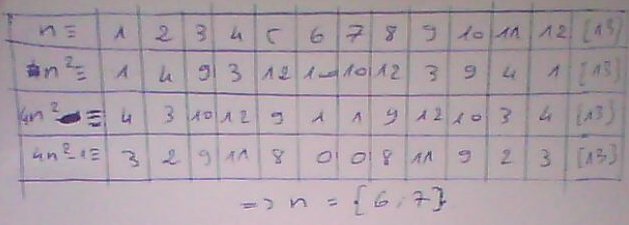 n ≡ 1 2 3 4 5 6 7 8 9 10 11 12 [13]
n² ≡ 1 4 9 3 12 10 10 12 3 9 4 1 [13]
4n² ≡ 4 3 10 12 9 1 1 9 12 10 3 4 [13]
4n²-1 ≡ 3 2 9 11 8 0 0 8 11 9 2 3 [13]
=> n = {6,7}